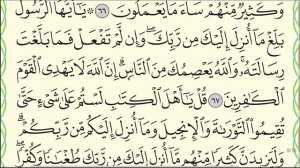 وَكَثِيرٌ مِّنْهُمْ سَاءَ مَا يَعْمَلُونَ ٦٦ ۞ يَٰٓأَيُّهَا الرَّسُولُ
بَلِّغْ مَا أُنزِلَ إِلَيْكَ مِن رَّبِّكَ ۖ وَإِن لَّمْ تَفْعَلْ فَمَا بَلَّغْتَ
رِسَالَتَهُۥ ۚ وَاللَّهُ يَعْصِمُكَ مِنَ النَّاسِ ۗ إِنَّ اللَّهَ لَا يَهْدِى الْقَوْمَ
الْكَٰفِرِينَ ٦٧ قُلْ يَٰٓأَهْلَ الْكِتَٰبِ لَسْتُمْ عَلَىٰ شَىْءٍ حَتَّىٰ
تُقِيمُوا التَّوْرَىٰةَ وَالْإِنجِيلَ وَمَا أُنزِلَ إِلَيْكُم مِّن رَّبِّكُمْ ۗ
وَلَيَزِيدَنَّ كَثِيرًا مِّنْهُم مَّا أُنزِلَ إِلَيْكَ مِن رَّبِّكَ طُغْيَٰنًا وَكُفْرًا